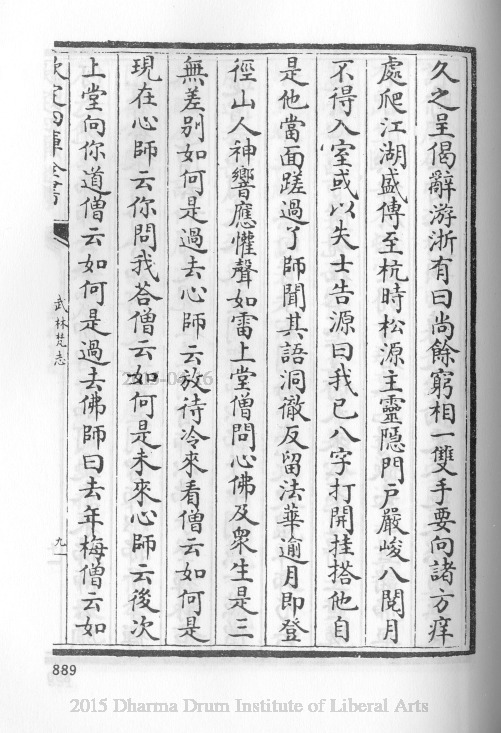 久之呈偈辭游浙有曰尚餘窮相一雙手要向諸方痒
處爬江湖盛傳至杭時松源主靈隠門户嚴峻八閲月
不得入室或以失士告源曰我已八字打開挂搭他自
是他當面蹉過了師聞其語洞徹反留法華逾月即登
徑山人神響應懽聲如雷上堂僧問心佛及衆生是三
無差别如何是過去心師云放待冷來看僧云如何是
現在心師云你問我荅僧云如何是未來心師云後次
上堂向你道僧云如何是過去佛師曰去年梅僧云如
欽定四庫全書
武林梵志
九
889
2015 Dharma Drum Institute of Liberal Arts